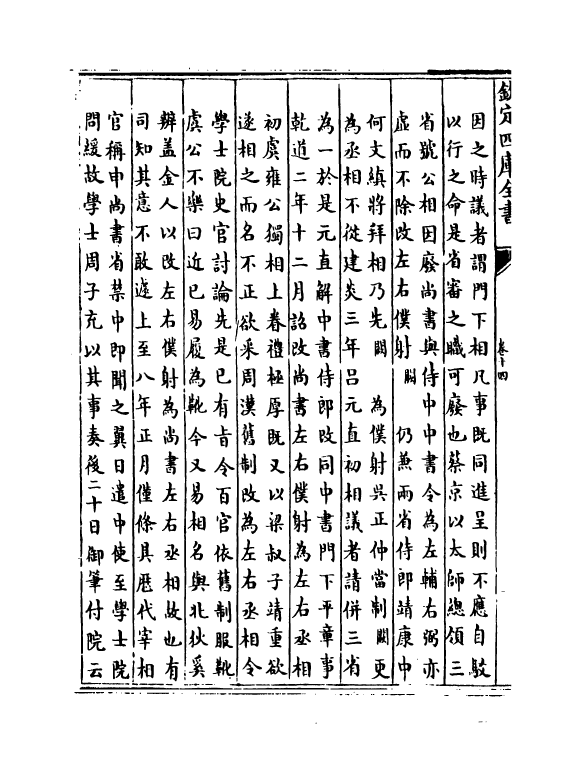 欽定四庫全書
卷十四
因之時議者謂門下相凡事既同進呈則不應自駁
以行之命是省審之職可廢也蔡京以太師總領三
省號公相因廢尚書與侍中中書令為左輔右弼亦
虛而不除改左右僕射闕　仍兼兩省侍郎靖康中
何文縝將拜相乃先闕　為僕射吳正仲當制闕更
為丞相不從建炎三年吕元直初相議者請併三省
為一於是元直解中書侍郎改同中書門下平章事
乾道二年十二月詔改尚書左右僕射為左右丞相
初虞雍公獨相上眷禮極厚既又以梁叔子靖重欲
遂相之而名不正欲采周漢舊制改為左右丞相令
學士院史官討論先是已有旨令百官依舊制服靴
虞公不樂曰近已易履為靴今又易相名與北狄奚
辨盖金人以改左右僕射為尚書左右丞相故也有
司知其意不敢遽上至八年正月僅條具厯代宰相
官稱申尚書省禁中即聞之翼日遣中使至學士院
問緩故學士周子充以其事奏後二十日御筆付院云